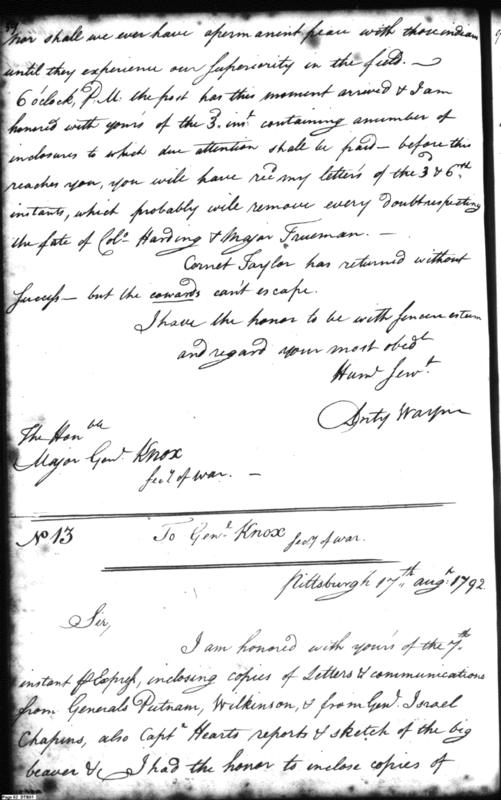 nor shall we ever have a permanent peace with those indians
until they experience our Superiority in the field. —
6 oClock, P.M. the post has this moment arrived & I am
honored with yours of the 3d. inst. containing a number of
inclosures to which due attention shall be paid — before this
reaches you, you will have recd. my letters of the 3d & 6th
instants, which probably will remove every doubt respecting
the fate of Colo. Harding & Major Trueman. —
Cornet Taylor has returned without
Success — but the cowards can't escape.
I have the honor to be with sincere esteem
and regard your most obedt.
Huml. Servt.
Anty Wayne
The Honble
Major Genl. Knox
Secy. of war. —
No 13 To Genl. Knox Secy of war.
Pittsburgh 17th. augt. 1792
Sir,
I am honored with yours of the 7th.
instant ⅌ Express, inclosing copies of Letters & communications
from Generals Putnam, Wilkinson, & from Genl. Israel
Chapins, also Captn. Hearts reports & sketch of the big
beaver & I had the honor to inclose copies of